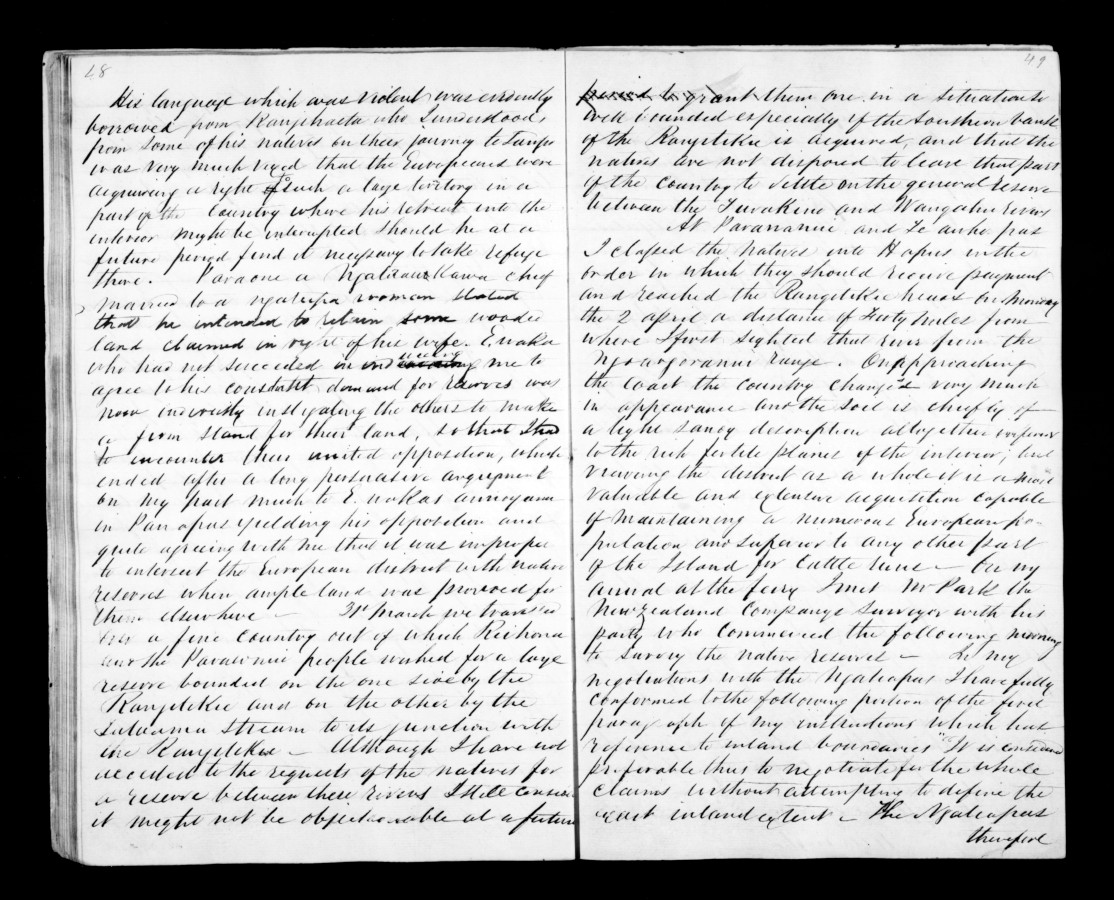 48
His language which was violent was evidently
borrowed from Rangihaeta who I understood
from some of his natives on their journey to
was very much vexed that the Europeans were
acquiring a right to such a large territory in a
part of the Country where his retreat into the
interior might be interrupted should he at a
future period find it necessary to take refuge
there. Paraone a Ngatiraukawa chief
married to a Ngatiapa woman stated
that he intended to retain some wooded
land claimed in right of his wife. E. waka
who had not succeeded in inducing me to
agree to his constant demand for reserves was
now indirectly instigating the others to make
a firm stand for their land, so that I had
to encounter their united opposition, which
ended after a long persuative arguement
on my part much to E. wakas annoyance
in Panapas yielding his opposition and
quite agreeing with me that it was improper
to intersect the European district with native
reserves when ample land was provided for
them elsewhere — March we travelled
over a fine country out of which
and the people wished for a large
reserve bounded on the one side by the
Rangitekie and on the other by the
stream to its junction with
the Rangitekie — Although I have not
acceded to the requests of the natives for
a reserve between these rivers I still consider
it might not be objectionable at a future
49
period to grant them one in a situation so
well bounded especially if the Southern bank
of the Rangitekie is acquired, and that the
natives are not disposed to leave that part
of the country to settle on the general reserve
between the Turakino and Wangahu Rivers
At Parawanui and
I classed the natives into Hapus in the
order in which they should receive payment
and reached the Rangitekie heads on Monday
the 2 april a distance of Forty miles from
where I first sighted that river from the
range. On approaching
the coast the country changes very much
in appearance and the soil is chiefly of
a light sandy description altogether inferior
to the rich fertile plains of the interior; but
viewing the district as a whole it is a most
valuable and extensive acquisition capable
of maintaining a numerous European po-
pulation and superior to any other part
of the Island for Cattle runs — On my
arrival at the ferry I met Mr Park the
New Zealand Companys Surveyor with his
party who commenced the following morning
to survey the native reserves — In my
negotiations with the Ngateapas I have fully
conformed to the following portion of the
paragraph of my instructions which has
reference to inland boundaries "It is considered
preferable thus to negotiate for the whole
claims without attempting to define the
exact inland extent — The Ngateapas
therefore